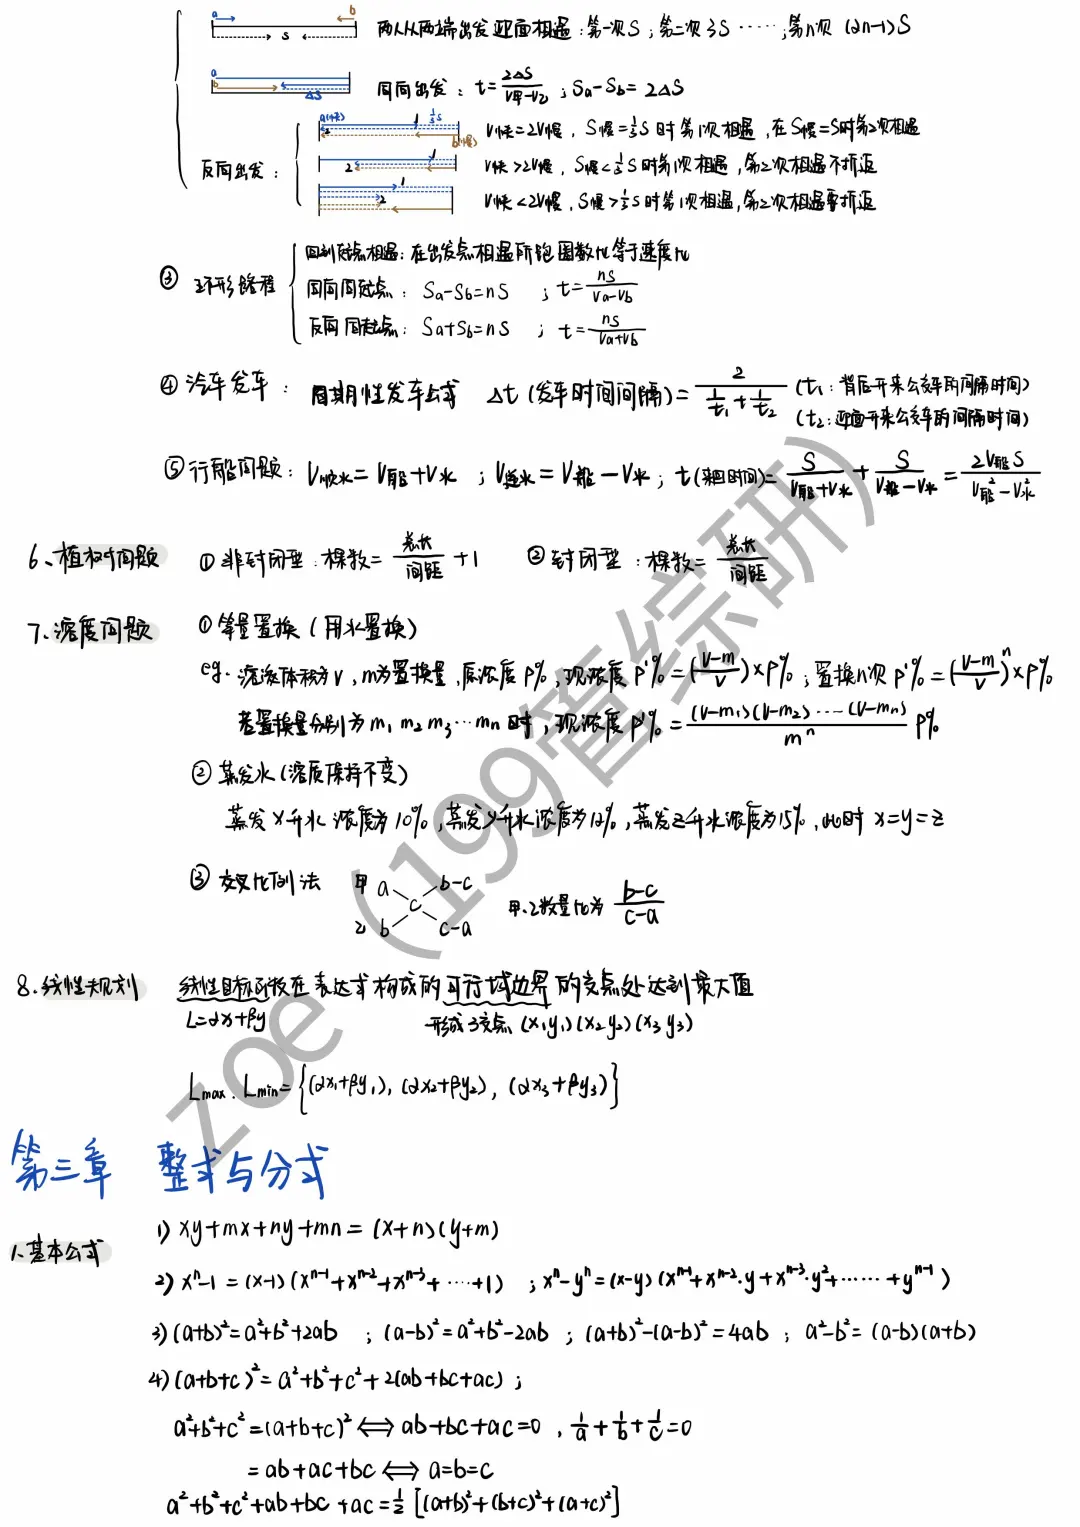 a b S 两人从两端出发迎面相遇：第一次S；第二次3S ……；第n次 (2n-1)S
a b ΔS 同向出发：t=2ΔS/(V甲-V乙)；Sa-Sb=2ΔS
反向出发：
a(快) 1 ½S 2 b(慢) V快=2V慢，S慢=⅓S时第1次相遇，在S慢=S时第2次相遇
1 2 V快>2V慢，S慢<⅓S时第1次相遇，第2次相遇不折返
1 2 V快<2V慢，S慢>⅓S时第1次相遇，第2次相遇要折返
③ 环形路程
回到起点相遇：在出发点相遇所跑圈数比等于速度比
同向同起点：Sa-Sb=nS ；t=nS/(Va-Vb)
反向同起点：Sa+Sb=nS ；t=nS/(Va+Vb)
④ 汽车发车：周期性发车公式 Δt(发车时间间隔)=2/(1/t₁+1/t₂) (t₁：背后开来公交车的间隔时间)
(t₂：迎面开来公交车的间隔时间)
⑤ 行船问题：V顺水=V船+V水；V逆水=V船-V水；t(来回时间)=S/(V船+V水)+S/(V船-V水)=2V船S/(V船²-V水²)
6、植树问题 ① 非封闭型：棵数=总长/间距+1 ② 封闭型：棵数=总长/间距
7、浓度问题 ① 等量置换(用水置换)
eg. 溶液体积为v，m为置换量，原浓度p%，现浓度p'%=((v-m)/v)×p%；置换n次p'%=((v-m)/v)ⁿ×p%
若置换量分别为m₁ m₂ m₃…mn时，现浓度p'%=(v-m₁)(v-m₂)……(v-mn)/mⁿ p%
② 蒸发水(溶质保持不变)
蒸发x升水浓度为10%，蒸发y升水浓度为12%，蒸发z升水浓度为15%，此时x=y=z
③ 交叉比例法 甲 a b-c
c 甲、乙数量比为 (b-c)/(c-a)
乙 b c-a
8、线性规划 线性目标函数在表达式构成的可行域边界的交点处达到最大值
L=αx+βy 形成3交点 (x₁y₁)(x₂y₂)(x₃y₃)
Lmax、Lmin={(αx₁+βy₁)，(αx₂+βy₂)，(αx₃+βy₃)}
第三章 整式与分式
1、基本公式 1) xy+mx+ny+mn=(x+n)(y+m)
2) xⁿ-1=(x-1)(xⁿ⁻¹+xⁿ⁻²+xⁿ⁻³+……+1) ；xⁿ-yⁿ=(x-y)(xⁿ⁻¹+xⁿ⁻²·y+xⁿ⁻³·y²+……+yⁿ⁻¹)
3) (a+b)²=a²+b²+2ab ；(a-b)²=a²+b²-2ab ；(a+b)²-(a-b)²=4ab ；a²-b²=(a-b)(a+b)
4) (a+b+c)²=a²+b²+c²+2(ab+bc+ac)；
a²+b²+c²=(a+b+c)²⟺ab+bc+ac=0，1/a+1/b+1/c=0
=ab+ac+bc⟺a=b=c
a²+b²+c²+ab+bc+ac=½[(a+b)²+(b+c)²+(a+c)²]
zoe (199管综研)